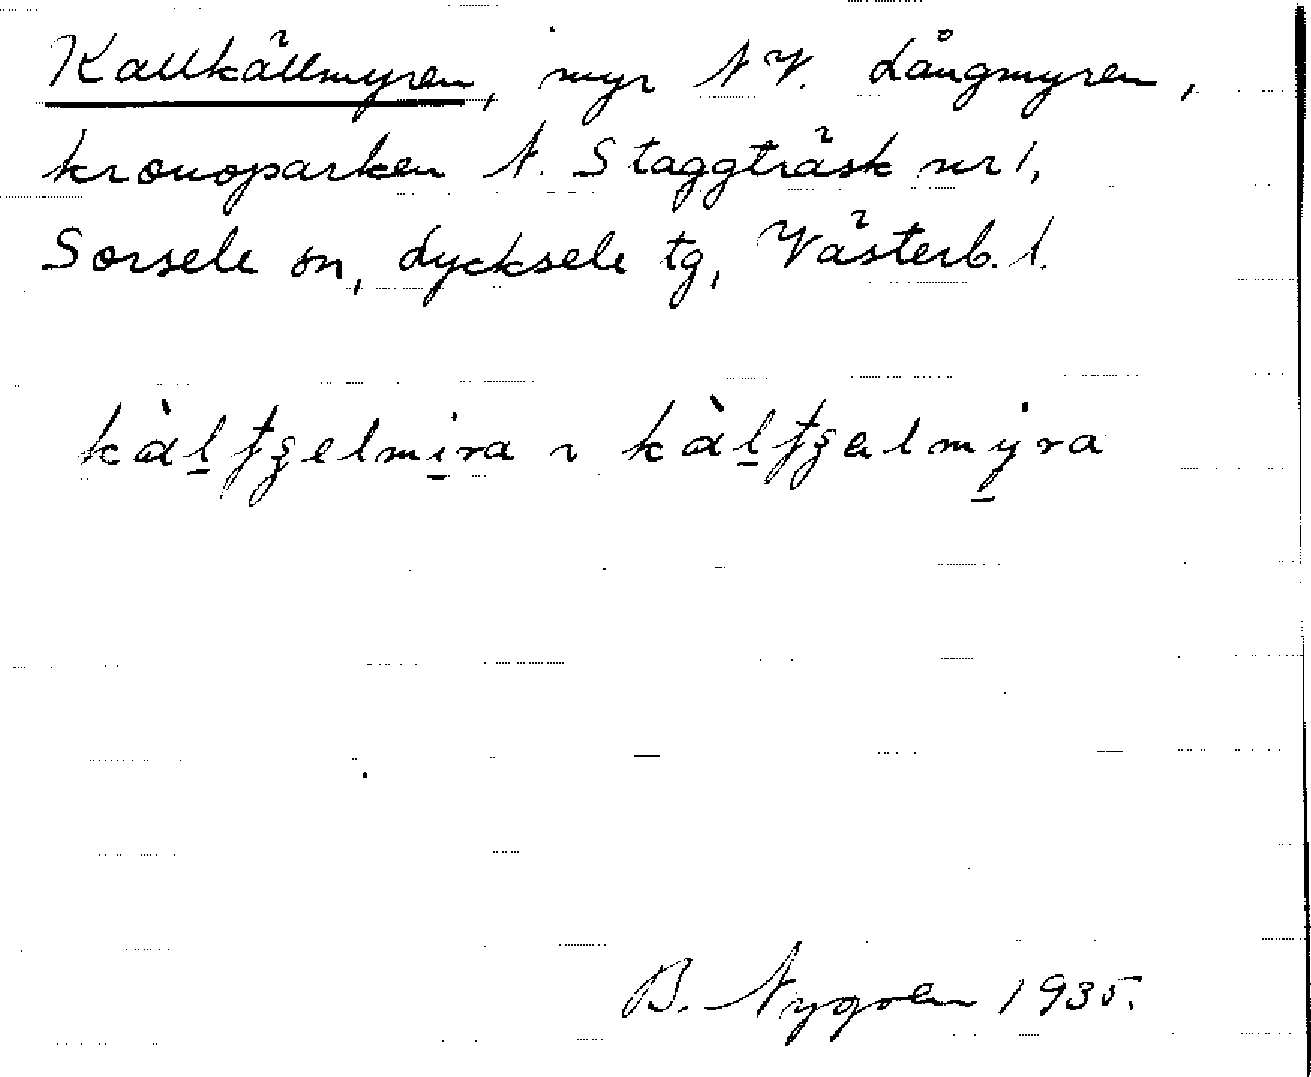 Kallkällmyren, myr NV. Långmyren,
kronoparken N. Staggträsk nr 1,
Sorsele sn, Lycksele tg, Västerb. l.
B. Nygren 1935.